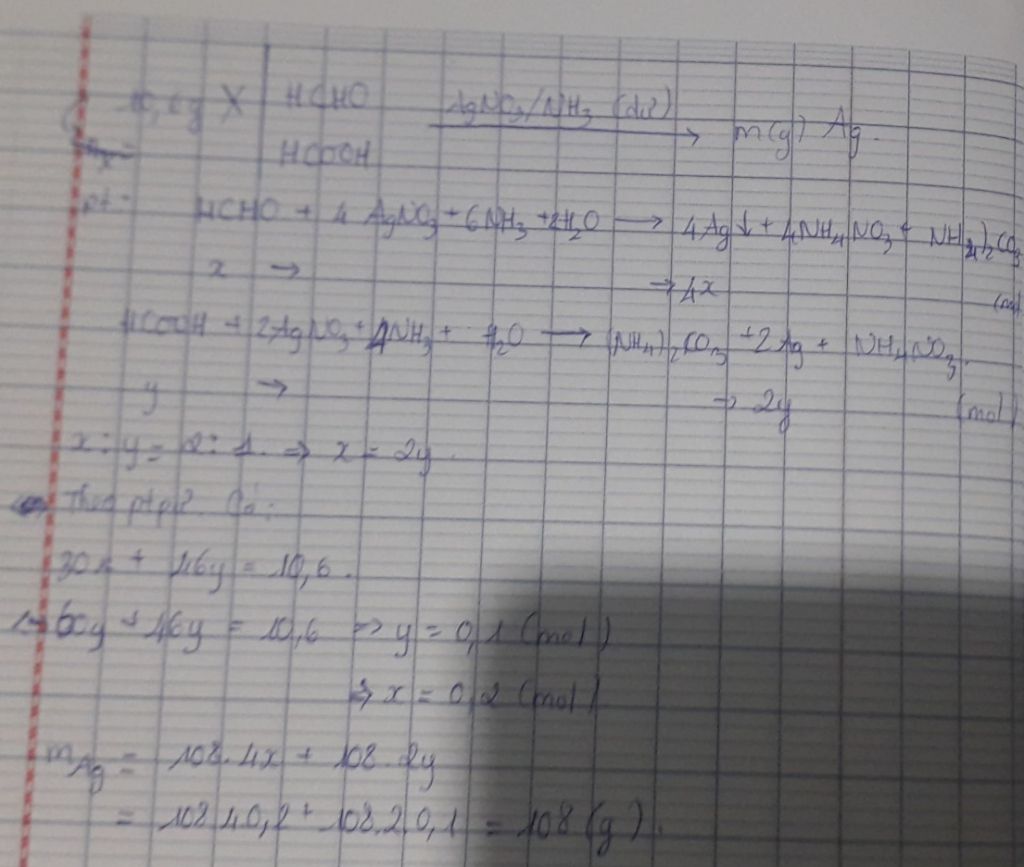 X HCHO AgNO3/NH3 (dư) → m(g) Ag.
HCOOH
pt: HCHO + 4 AgNO3 + 6NH3 + 2H2O → 4Ag↓ + 4NH4NO3 + NH4)2CO3
x → → 4x (mol
HCOOH + 2AgNO3 + 4NH3 + H2O → (NH4)2CO3 + 2Ag + NH4NO3.
y → → 2y (mol)
x : y = 2 : 1. ⇒ x = 2y.
Theo Có:
30x + 46y = 10,6.
60y + 46y = 10,6 ⇒ y = 0,1 (mol)
⇒ x = 0,2 (mol)
mAg = 108.4x + 108.2y
= 108 4 0,2 + 108.2 0,1 = 108 (g).